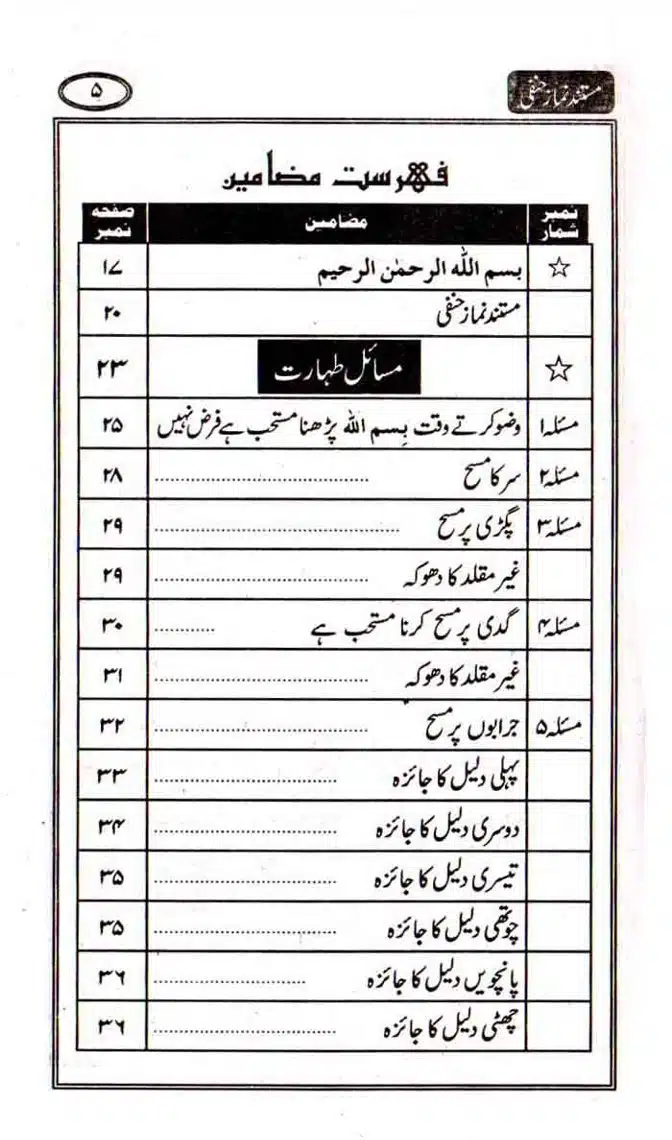 مستند نماز حنفی ۵
فهرست مضامین
نمبر شمار مضامین صفحہ نمبر
☆ بسم اللہ الرحمٰن الرحیم ۱۷
مستند نماز حنفی ۲۰
☆ مسائل طہارت ۲۳
مسئلہ ۱ وضو کرتے وقت بِسم اللہ پڑھنا مستحب ہے فرض نہیں ۲۵
مسئلہ ۲ سر کا مسح ........................................ ۲۸
مسئلہ ۳ پگڑی پر مسح ........................................ ۲۹
غیر مقلد کا دھوکہ ........................................ ۲۹
مسئلہ ۴ گدی پر مسح کرنا مستحب ہے ............ ۳۰
غیر مقلد کا دھوکہ ........................................ ۳۱
مسئلہ ۵ جرابوں پر مسح ........................................ ۳۲
پہلی دلیل کا جائزہ .................................. ۳۳
دوسری دلیل کا جائزہ .................................. ۳۴
تیسری دلیل کا جائزہ .................................. ۳۵
چوتھی دلیل کا جائزہ .................................. ۳۵
پانچویں دلیل کا جائزہ ............................ ۳۶
چھٹی دلیل کا جائزہ .................................. ۳۶